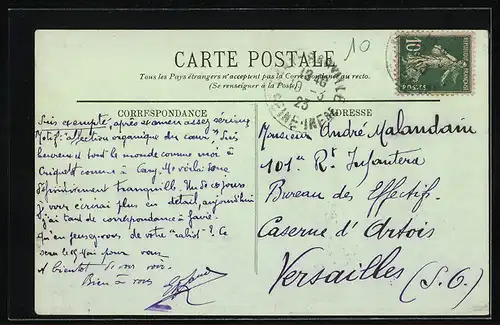 10
CARTE POSTALE
Tous les Pays étrangers n'acceptent pas la Correspondance au recto.
(Se renseigner à la Poste)
CORRESPONDANCE
ADRESSE
SEINE-INFRE
Suis exempté, après examen assez sérieux
Motif: "affection organique du cœur". Suis
heureux et tout le monde comme moi à
Criquetot comme à Cany. Me voilà donc
définitivement tranquille. Un de ces jours
Je vous écrirai plus en détail, aujourd'hui
j'ai tant de correspondance à faire.
Qu'en pensez-vous de votre "rabiot"? Ce
sera le Mai pour vous
A bientôt
Bien à vous
Monsieur André Malandain
101e Rt Infanterie
Bureau des Effectifs.
Caserne d'Artois
Versailles (S. O.)